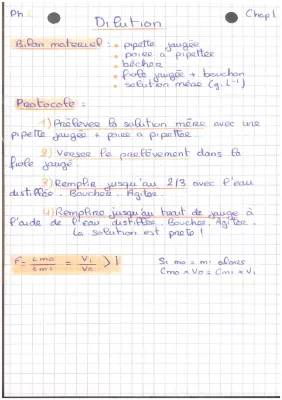 Ph
Chap 1
Dilution
Bilan materiel : • pipette jaugée
• poire à pipetter
• bécher
• fiole jaugée + bouchon
• solution mère (g.L⁻¹)
Protocole :
1) Prélever la solution mère avec une
pipette jaugée + poire à pipetter.
2) Verser le prélèvement dans la
fiole jaugé.
3) Remplir jusqu'au 2/3 avec l'eau
distillée. Boucher. Agiter.
4) Remplir jusqu'au trait de jauge à
l'aide de l'eau distillée. Boucher. Agiter.
la solution est prete !
F = Cm0 / Cm1 = V1 / V0 > 1
Si m0 = m1 alors
Cm0 × V0 = Cm1 × V1